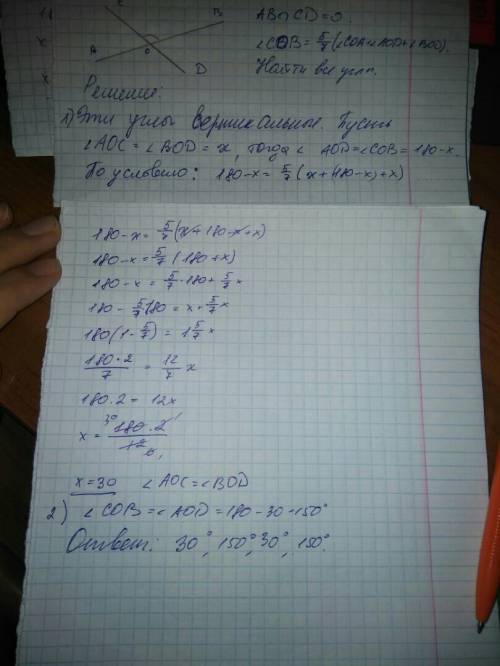 AB∩CD=O.
∠COB= 5/7 (∠COA+∠AOD+∠BOD).
Найти все углы.
C
B
A
O
D
Решение.
1) Эти углы вертикальные. Пусть
∠AOC = ∠BOD = x, тогда ∠ AOD=∠COB= 180-x.
По условию: 180-x = 5/7 (x+(180-x)+x)
180-x= 5/7 (x+180-x+x)
180-x= 5/7 (180+x)
180-x = 5/7·180+ 5/7 x
180 - 5/7·180 = x+ 5/7 x
180(1- 5/7) = 1 5/7 x
180·2/7 = 12/7 x
180·2 = 12x
x = 180·2/12
30 1 6 1
x=30 ∠AOC=∠BOD
2) ∠COB=∠AOD=180-30=150°
Ответ: 30°, 150°, 30°, 150°.